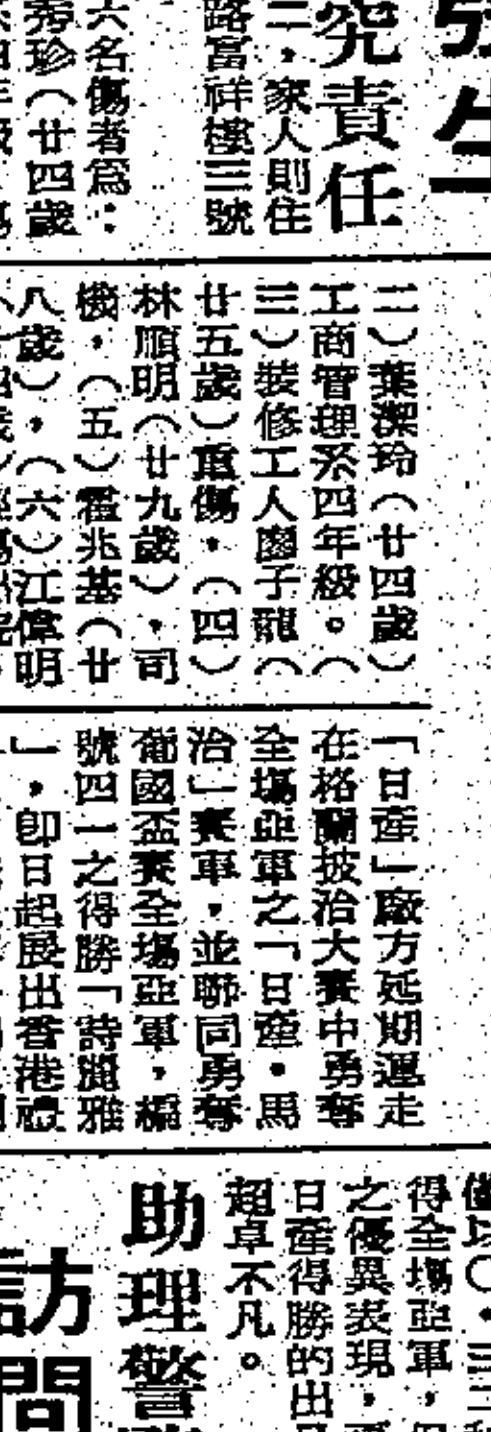 究責任
二，家人則住
路富祥樓三號
六名傷者為：
秀珍（廿四歲
二）葉潔玲（廿四歲）
工商管理系四年級。（
三）裝修工人鄺子龍（
廿五歲）重傷，（四）
林順明（廿九歲），司
機，（五）霍兆基（廿
八歲），（六）江偉明
「日產」廠方延期運走
在格蘭披治大賽中勇奪
全場亞軍之「日產・馬
治」賽車，並聯同勇奪
葡國盃賽全場亞軍，編
號四一之得勝「詩麗雅
」，即日起展出香港禮
僅以〇・三二
得全場亞軍，
之優異表現，
日產得勝的出
超卓不凡。
助理警
訪問